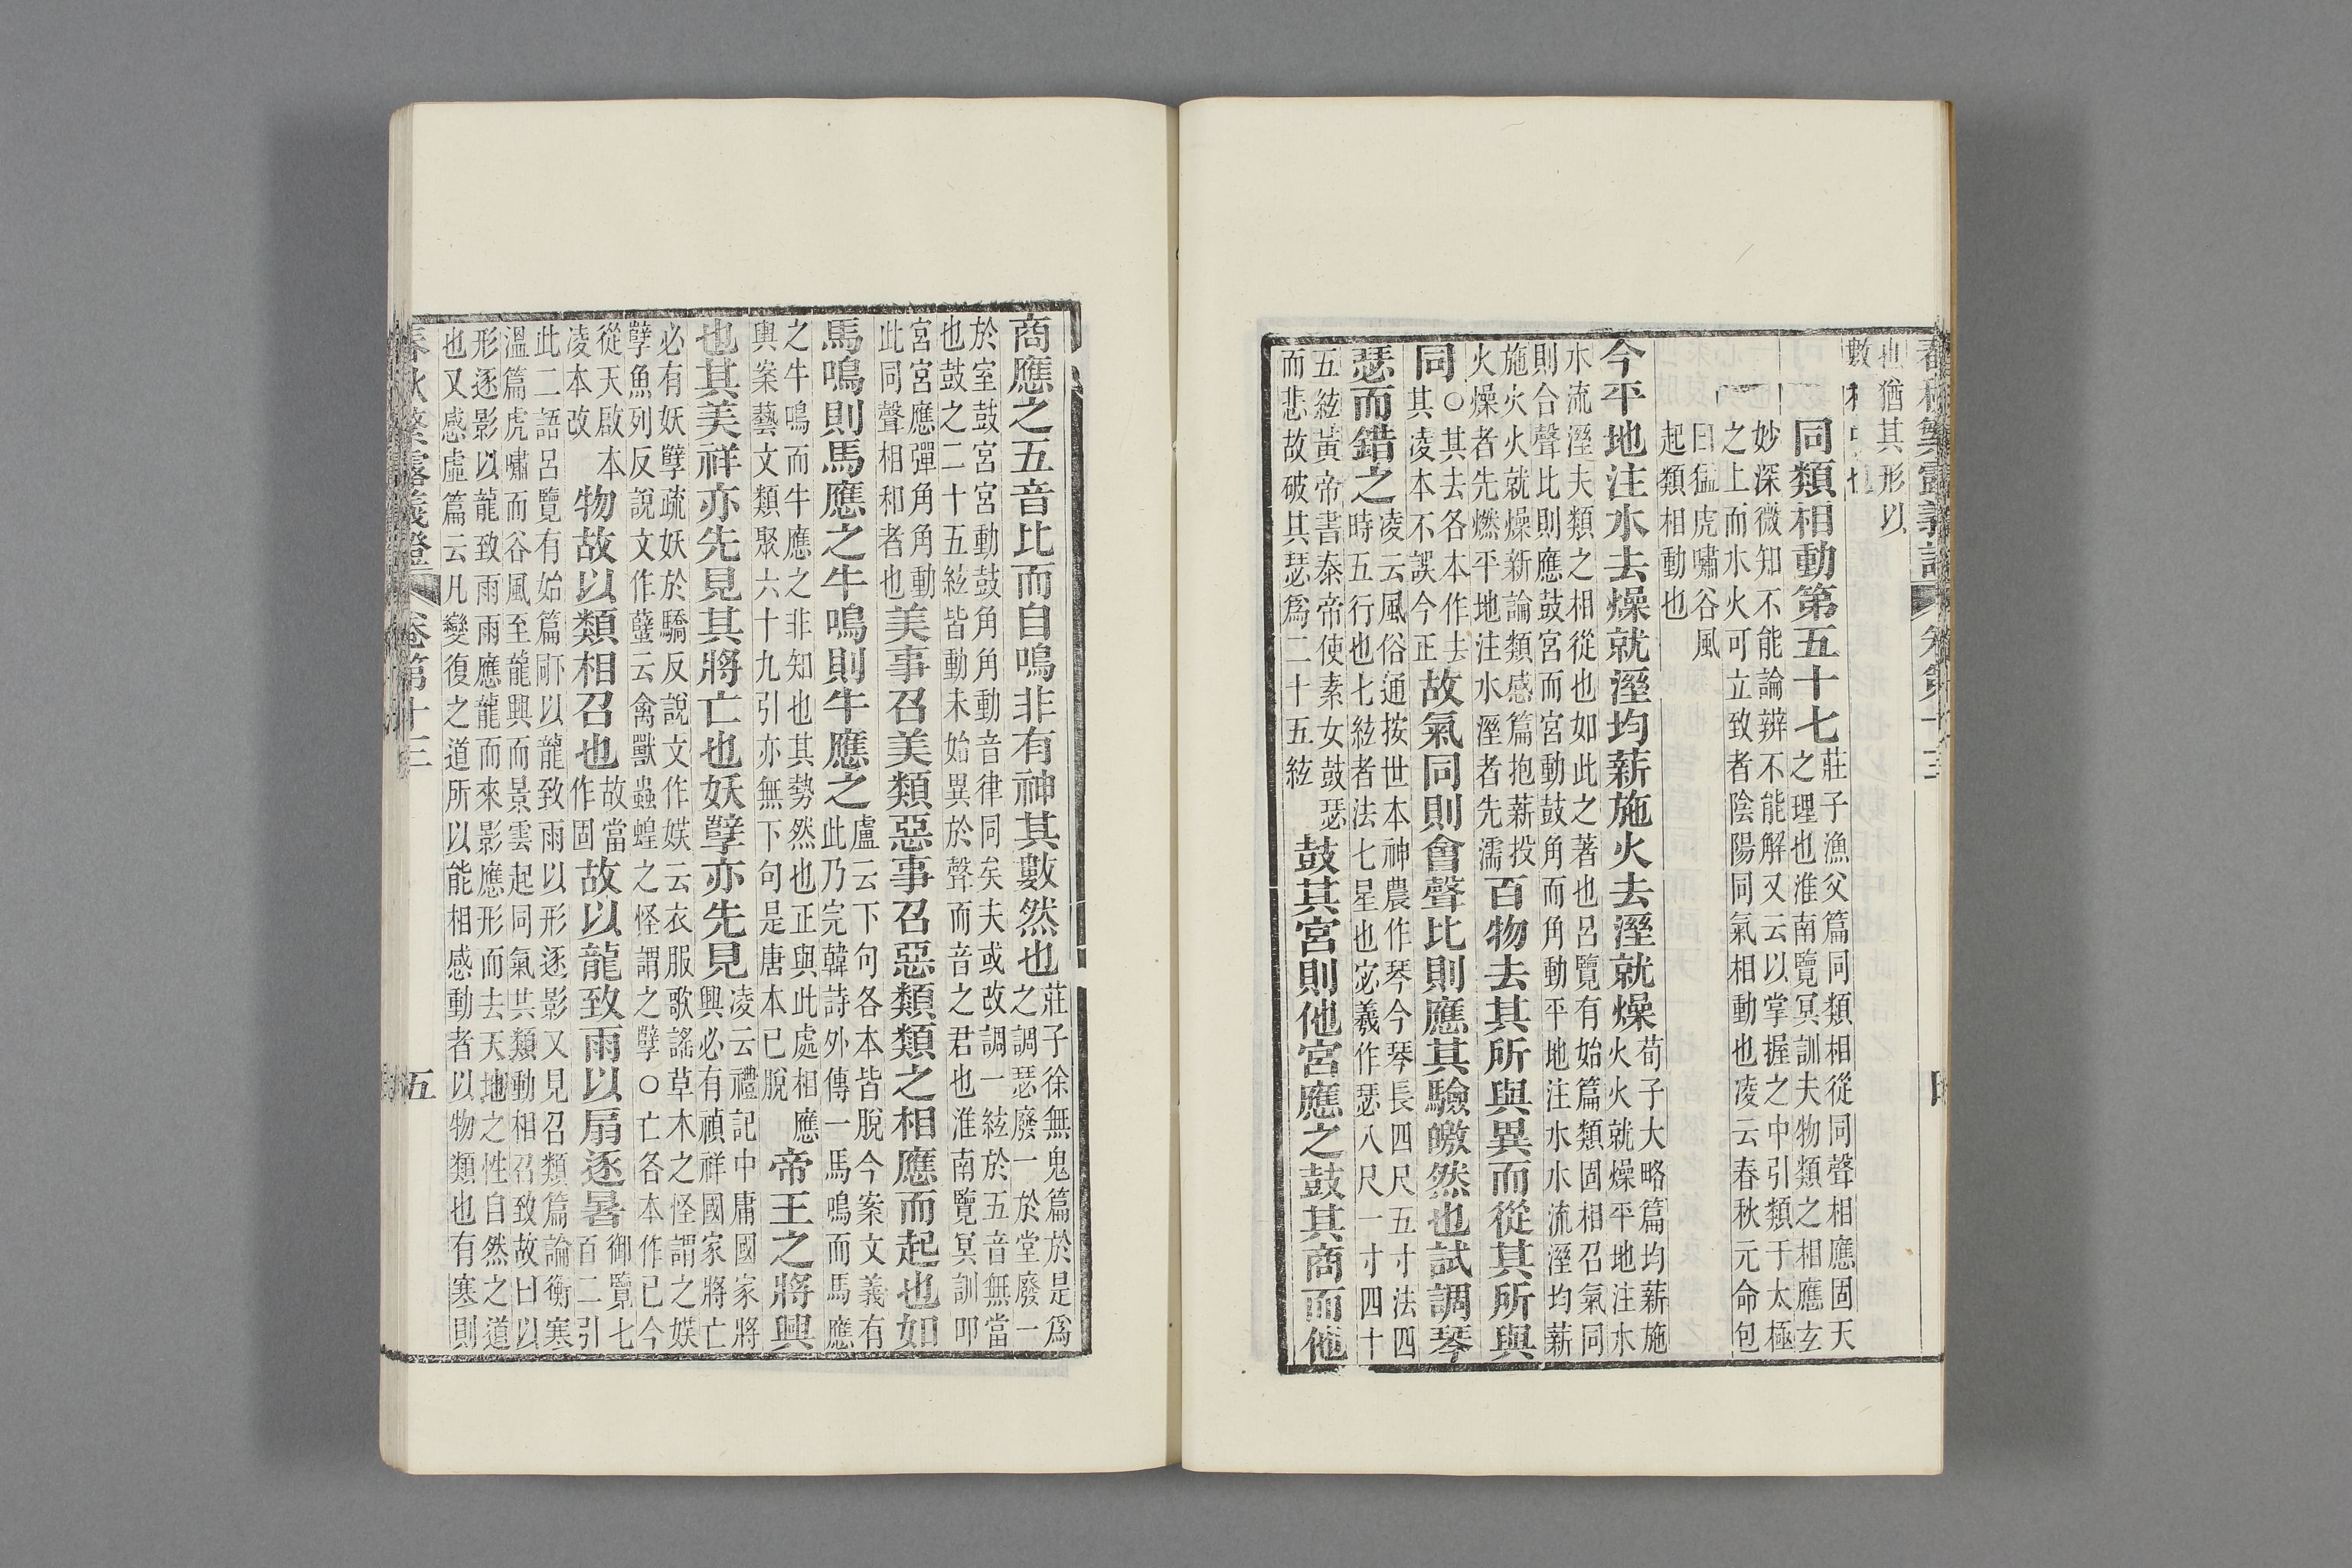 春秋繁露義證 卷第十三
也猶其形以
數
同類相動第五十七
莊子漁父篇同類相從同聲相應固天
之理也淮南覽冥訓夫物類之相應玄
妙深微知不能論辨不能解又云以掌握之中引類于太極
之上而水火可立致者陰陽同氣相動也凌云春秋元命包
曰猛虎嘯谷風
起類相動也
今平地注水去燥就溼均薪施火去溼就燥
荀子大略篇均薪施
火火就燥平地注水
水流溼夫類之相從也如此之著也呂覽有始篇類固相召氣同
則合聲比則應鼓宮而宮動鼓角而角動平地注水水流溼均薪
施火火就燥新論類感篇抱薪投
火燥者先燃平地注水溼者先濡
百物去其所與異而從其所與
同
○其去各本作去
其凌本不誤今正
故氣同則會聲比則應其驗皦然也試調琴
瑟而錯之
凌云風俗通按世本神農作琴今琴長四尺五寸法四
時五行也七絃者法七星也宓羲作瑟八尺一寸四十
五絃黃帝書泰帝使素女鼓瑟
而悲故破其瑟爲二十五絃
鼓其宮則他宮應之鼓其商而他
商應之五音比而自鳴非有神其數然也
莊子徐無鬼篇於是爲
之調瑟廢一於堂廢一
於室鼓宮宮動鼓角角動音律同矣夫或改調一絃於五音無當
也鼓之二十五絃皆動未始異於聲而音之君也淮南覽冥訓叩
宮宮應彈角角動
此同聲相和者也
美事召美類惡事召惡類類之相應而起也如
馬鳴則馬應之牛鳴則牛應之
盧云下句各本皆脫今案文義有
此乃完韓詩外傳一馬鳴而馬應
之牛鳴而牛應之非知也其勢然也正與此處相應
與案藝文類聚六十九引亦無下句是唐本已脫
帝王之將興
也其美祥亦先見其將亡也妖孼亦先見
凌云禮記中庸國家將
興必有禎祥國家將亡
必有妖孼疏妖於驕反說文作媖云衣服歌謠草木之怪謂之媖
孼魚列反說文作蠥云禽獸蟲蝗之怪謂之孼○亡各本作已今
從天啟本
凌本改
物故以類相召也
故當
作固
故以龍致雨以扇逐暑
御覽七
百二引
此二語呂覽有始篇㫄以龍致雨以形逐影又見召類篇論衡寒
溫篇虎嘯而谷風至龍興而景雲起同氣共類動相召致故曰以
形逐影以龍致雨雨應龍而來影應形而去天地之性自然之道
也又感虛篇云凡變復之道所以能相感動者以物類也有寒則
春秋繁露義證 卷第十三 五